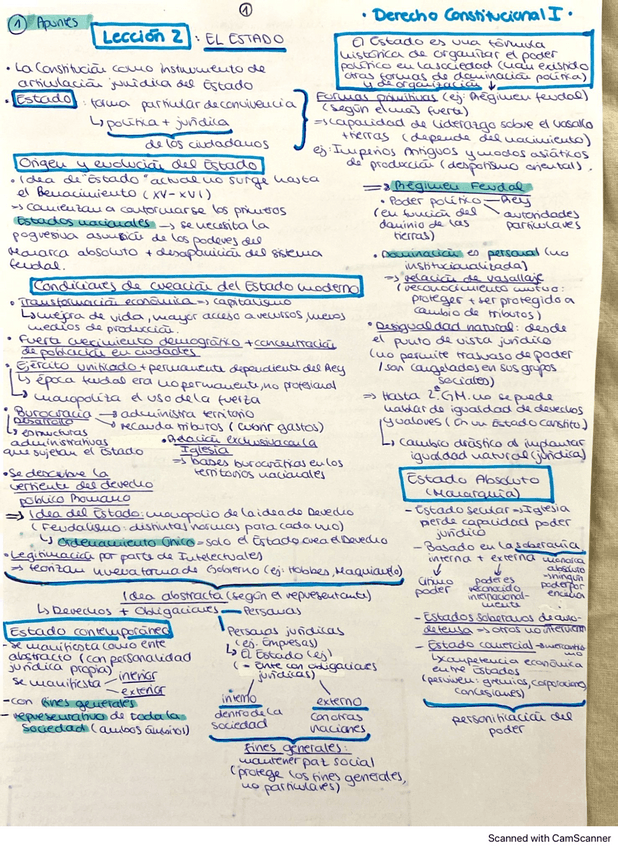 ① Apuntes
①
· Derecho Constitucional I ·
Lección 2 : EL ESTADO
· La Constitución como instrumento de
articulación jurídica del Estado
· Estado : forma particular de convivencia
↳ política + jurídica
de los ciudadanos
El Estado es una fórmula
histórica de organizar el poder
político en la sociedad (han existido
otras formas de dominación política)
y de organización
Formas primitivas (ej: Régimen feudal)
(según el más fuerte)
⇒ capacidad de liderazgo sobre el vasallo
+ tierras (depende del nacimiento)
ej: Imperios Antiguos y modos asiáticos
de producción (despotismo oriental).
Origen y evolución del Estado
· Idea de "Estado" actual no surge hasta
el Renacimiento (XV-XVI)
→ comienzan a conformarse los primeros
Estados nacionales → se necesita la
progresiva asunción de los poderes del
Monarca absoluto + desaparición del sistema
feudal.
Condiciones de creación del Estado moderno
· Transformación económica → capitalismo
↳ mejora de vida, mayor acceso a recursos, nuevos
medios de producción.
· Fuerte crecimiento demográfico + concentración
de población en ciudades
· Ejército unificado + permanente dependiente del Rey
↳ época feudal era no permanente, no profesional
↳ monopoliza el uso de la fuerza
· Burocracia → administra territorio
desarrollo → recauda tributos (cubrir gastos)
↳ estructuras
administrativas
que sujetan el Estado
· Relación exclusiva con la
Iglesia
⇒ bases burocráticas en los
territorios nacionales
· Se descubre la
vertiente del derecho
público Romano
⇒ Idea del Estado: monopolio de la idea de Derecho
(Feudalismo: distintas normas para cada uno)
↳ Ordenamiento Único = solo el Estado crea el Derecho
· Legitimación por parte de Intelectuales
⇒ teorizan nueva forma de Gobierno (ej: Hobbes, Maquiavelo)
Idea abstracta (según el representante)
↳ Derechos + Obligaciones — Personas
Personas jurídicas
(ej. Empresas)
↳ El Estado (ej)
(- Ente con obligaciones
jurídicas)
interno
dentro de la
sociedad
externo
con otras
naciones
Fines generales:
mantener paz social
(protege los fines generales,
no particulares)
Estado contemporáneo
- se manifiesta como ente
abstracto (con personalidad
jurídica propia)
se manifiesta interior
exterior
- con fines generales
- representativo de toda la
sociedad (ambos ámbitos)
⇒ Régimen Feudal
· Poder político — Rey
(en función del
dominio de las
tierras)
autoridades
particulares
· Dominación es personal (no
institucionalizada)
⇒ relación de vasallaje
(reconocimiento mutuo:
proteger + ser protegido a
cambio de tributos)
· Desigualdad natural: desde
el punto de vista jurídico
(no permite trasvase de poder
/ son congelados en sus grupos
sociales)
⇒ Hasta 2ª G.M. no se puede
hablar de igualdad de derechos
y valores (en un Estado constito)
↳ Cambio drástico al implantar
igualdad natural (jurídica)
Estado Absoluto
(Monarquía)
- Estado secular → Iglesia
pierde capacidad poder
jurídico
- Basado en la soberanía
interna + externa
único
poder
poder es
reconocido
internacional-
mente
monarca
absoluto
→ ningún
poder por
encima
- Estados soberanos de auto-
defensa → otros no intervienen
- Estado comercial
↳ competencia económica
entre Estados
(perviven: gremios, corporaciones,
concesiones)
personificación del
poder
Scanned with CamScanner